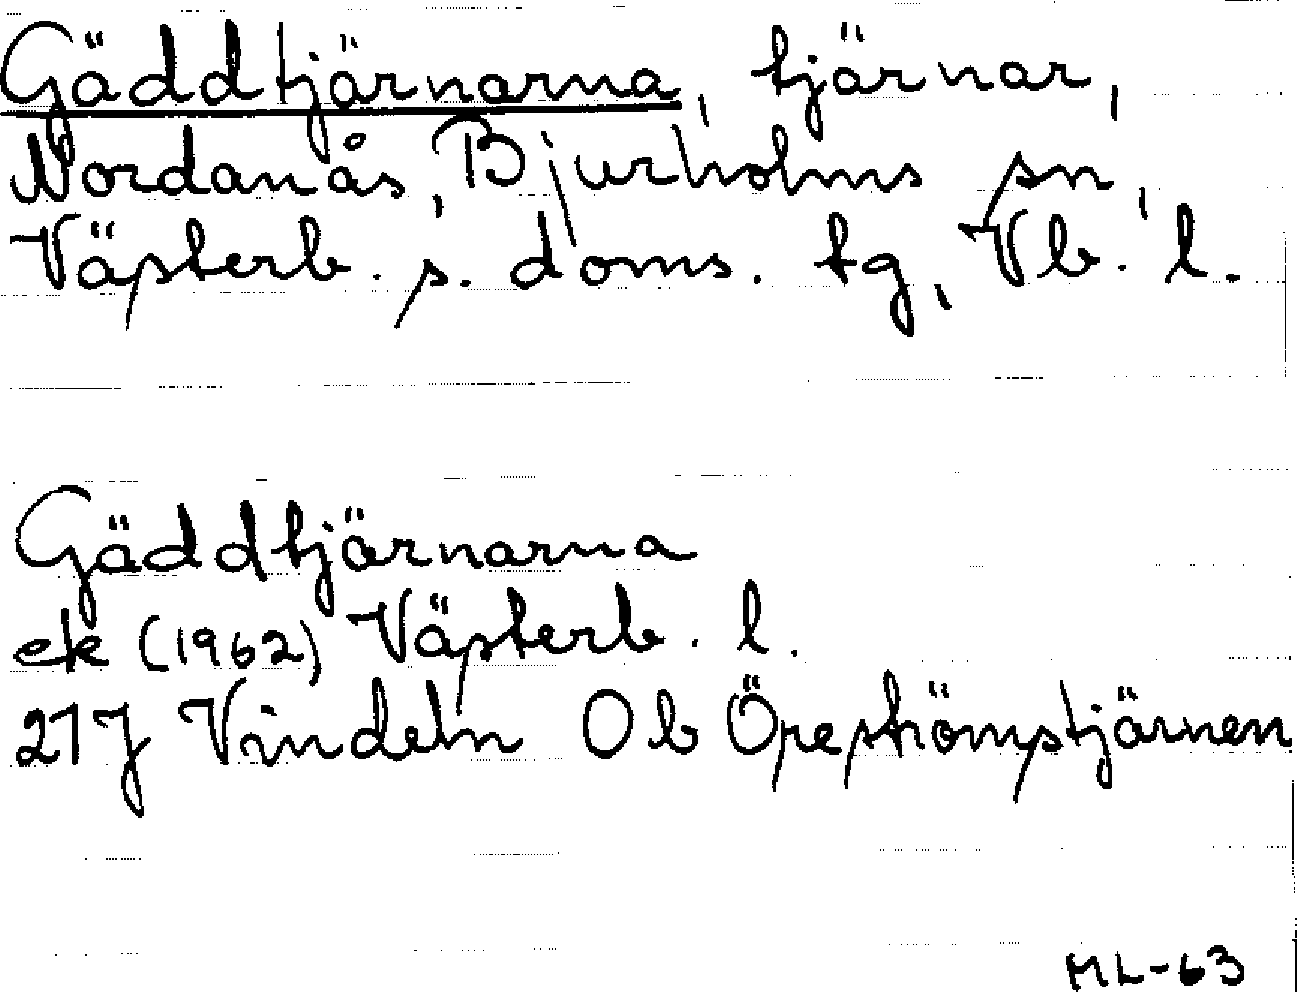 Gäddtjärnarna, tjärnar,
Nordanås, Bjurholms sn,
Västerb. s. doms. tg, Vb. l.
Gäddtjärnarna
ek (1962) Västerb. l.
21J Vindeln 0b Öreströmstjärnen
ML-63